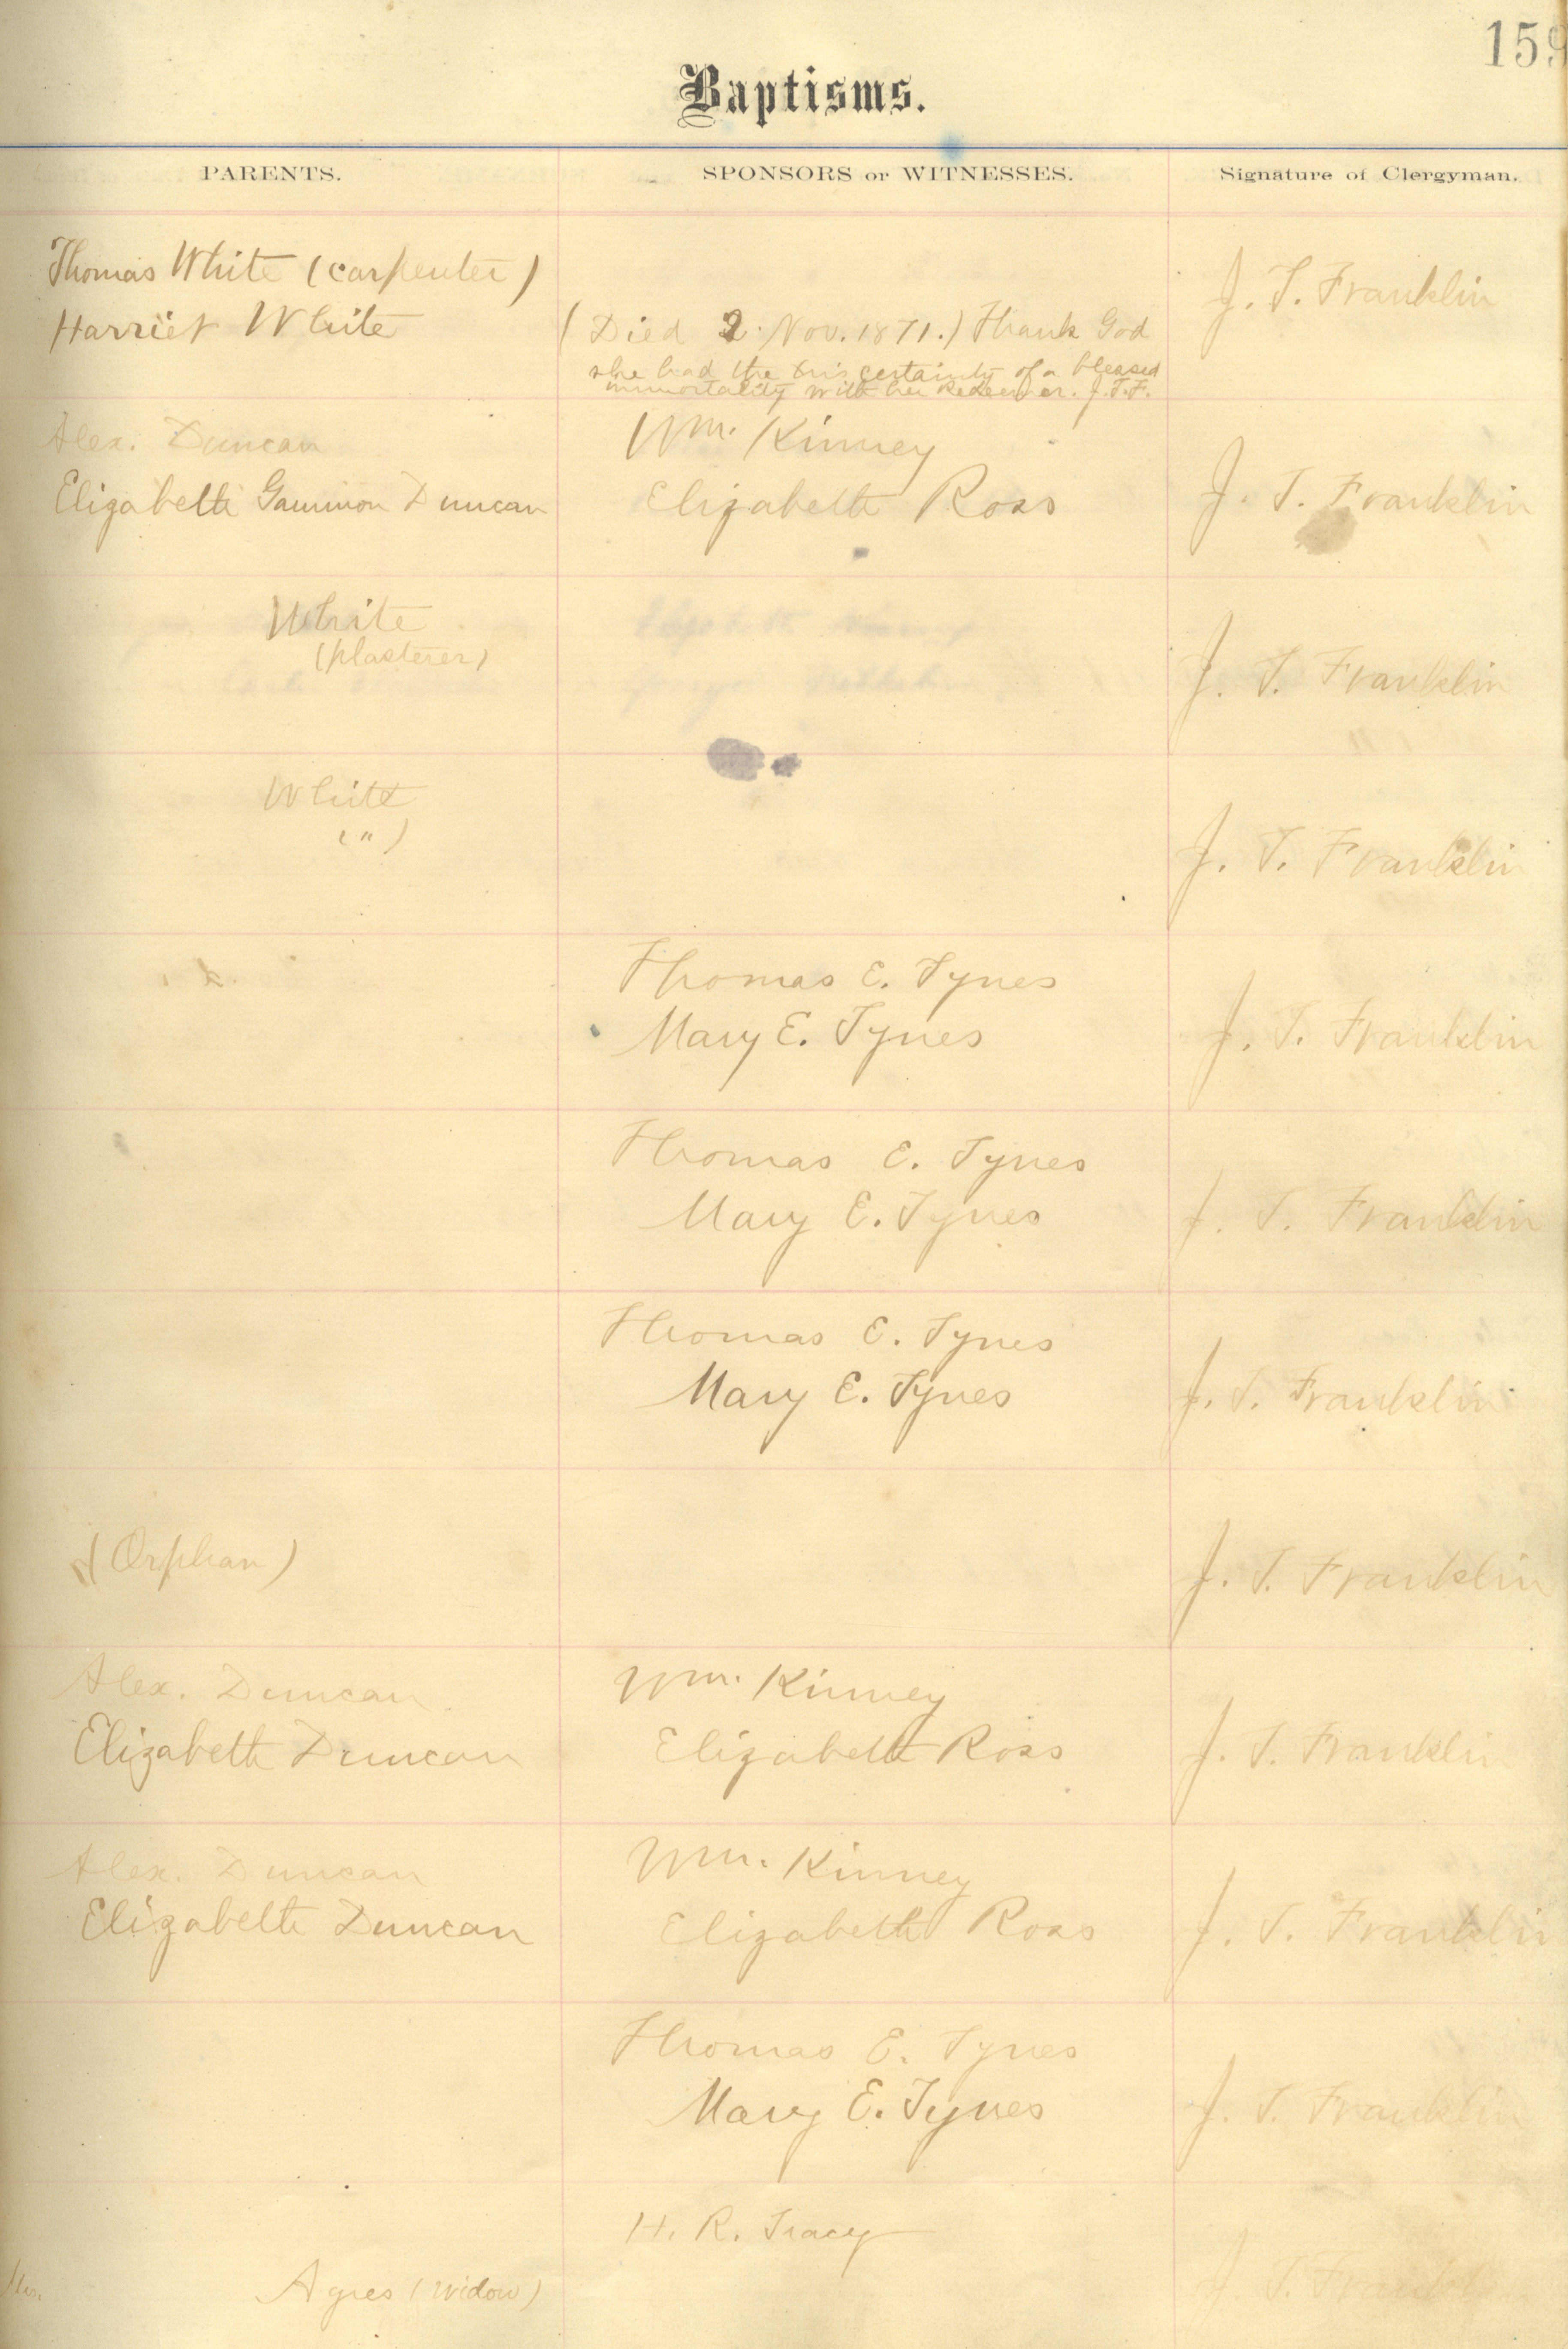 159
Baptisms.
PARENTS. SPONSORS or WITNESSES. Signature of Clergyman.
Thomas White (carpenter)
Harriet White
(Died 2. Nov. 1871.) Thank God
she had the certainty of a blessed
immortality with her Redeemer. J.T.F.
J. T. Franklin
Alex. Duncan
Elizabeth Gammon Duncan
Wm. Kinney
Elizabeth Ross
J. T. Franklin
White
(plasterer)
J. T. Franklin
White
( " )
J. T. Franklin
Thomas E. Tynes
Mary E. Tynes
J. T. Franklin
Thomas E. Tynes
Mary E. Tynes
J. T. Franklin
Thomas E. Tynes
Mary E. Tynes
J. T. Franklin
(Orphan)
J. T. Franklin
Alex. Duncan
Elizabeth Duncan
Wm. Kinney
Elizabeth Ross
J. T. Franklin
Alex. Duncan
Elizabeth Duncan
Wm. Kinney
Elizabeth Ross
J. T. Franklin
Thomas E. Tynes
Mary E. Tynes
J. T. Franklin
Mrs. Agres (widow)
H. R. Tracy
J. T. Franklin